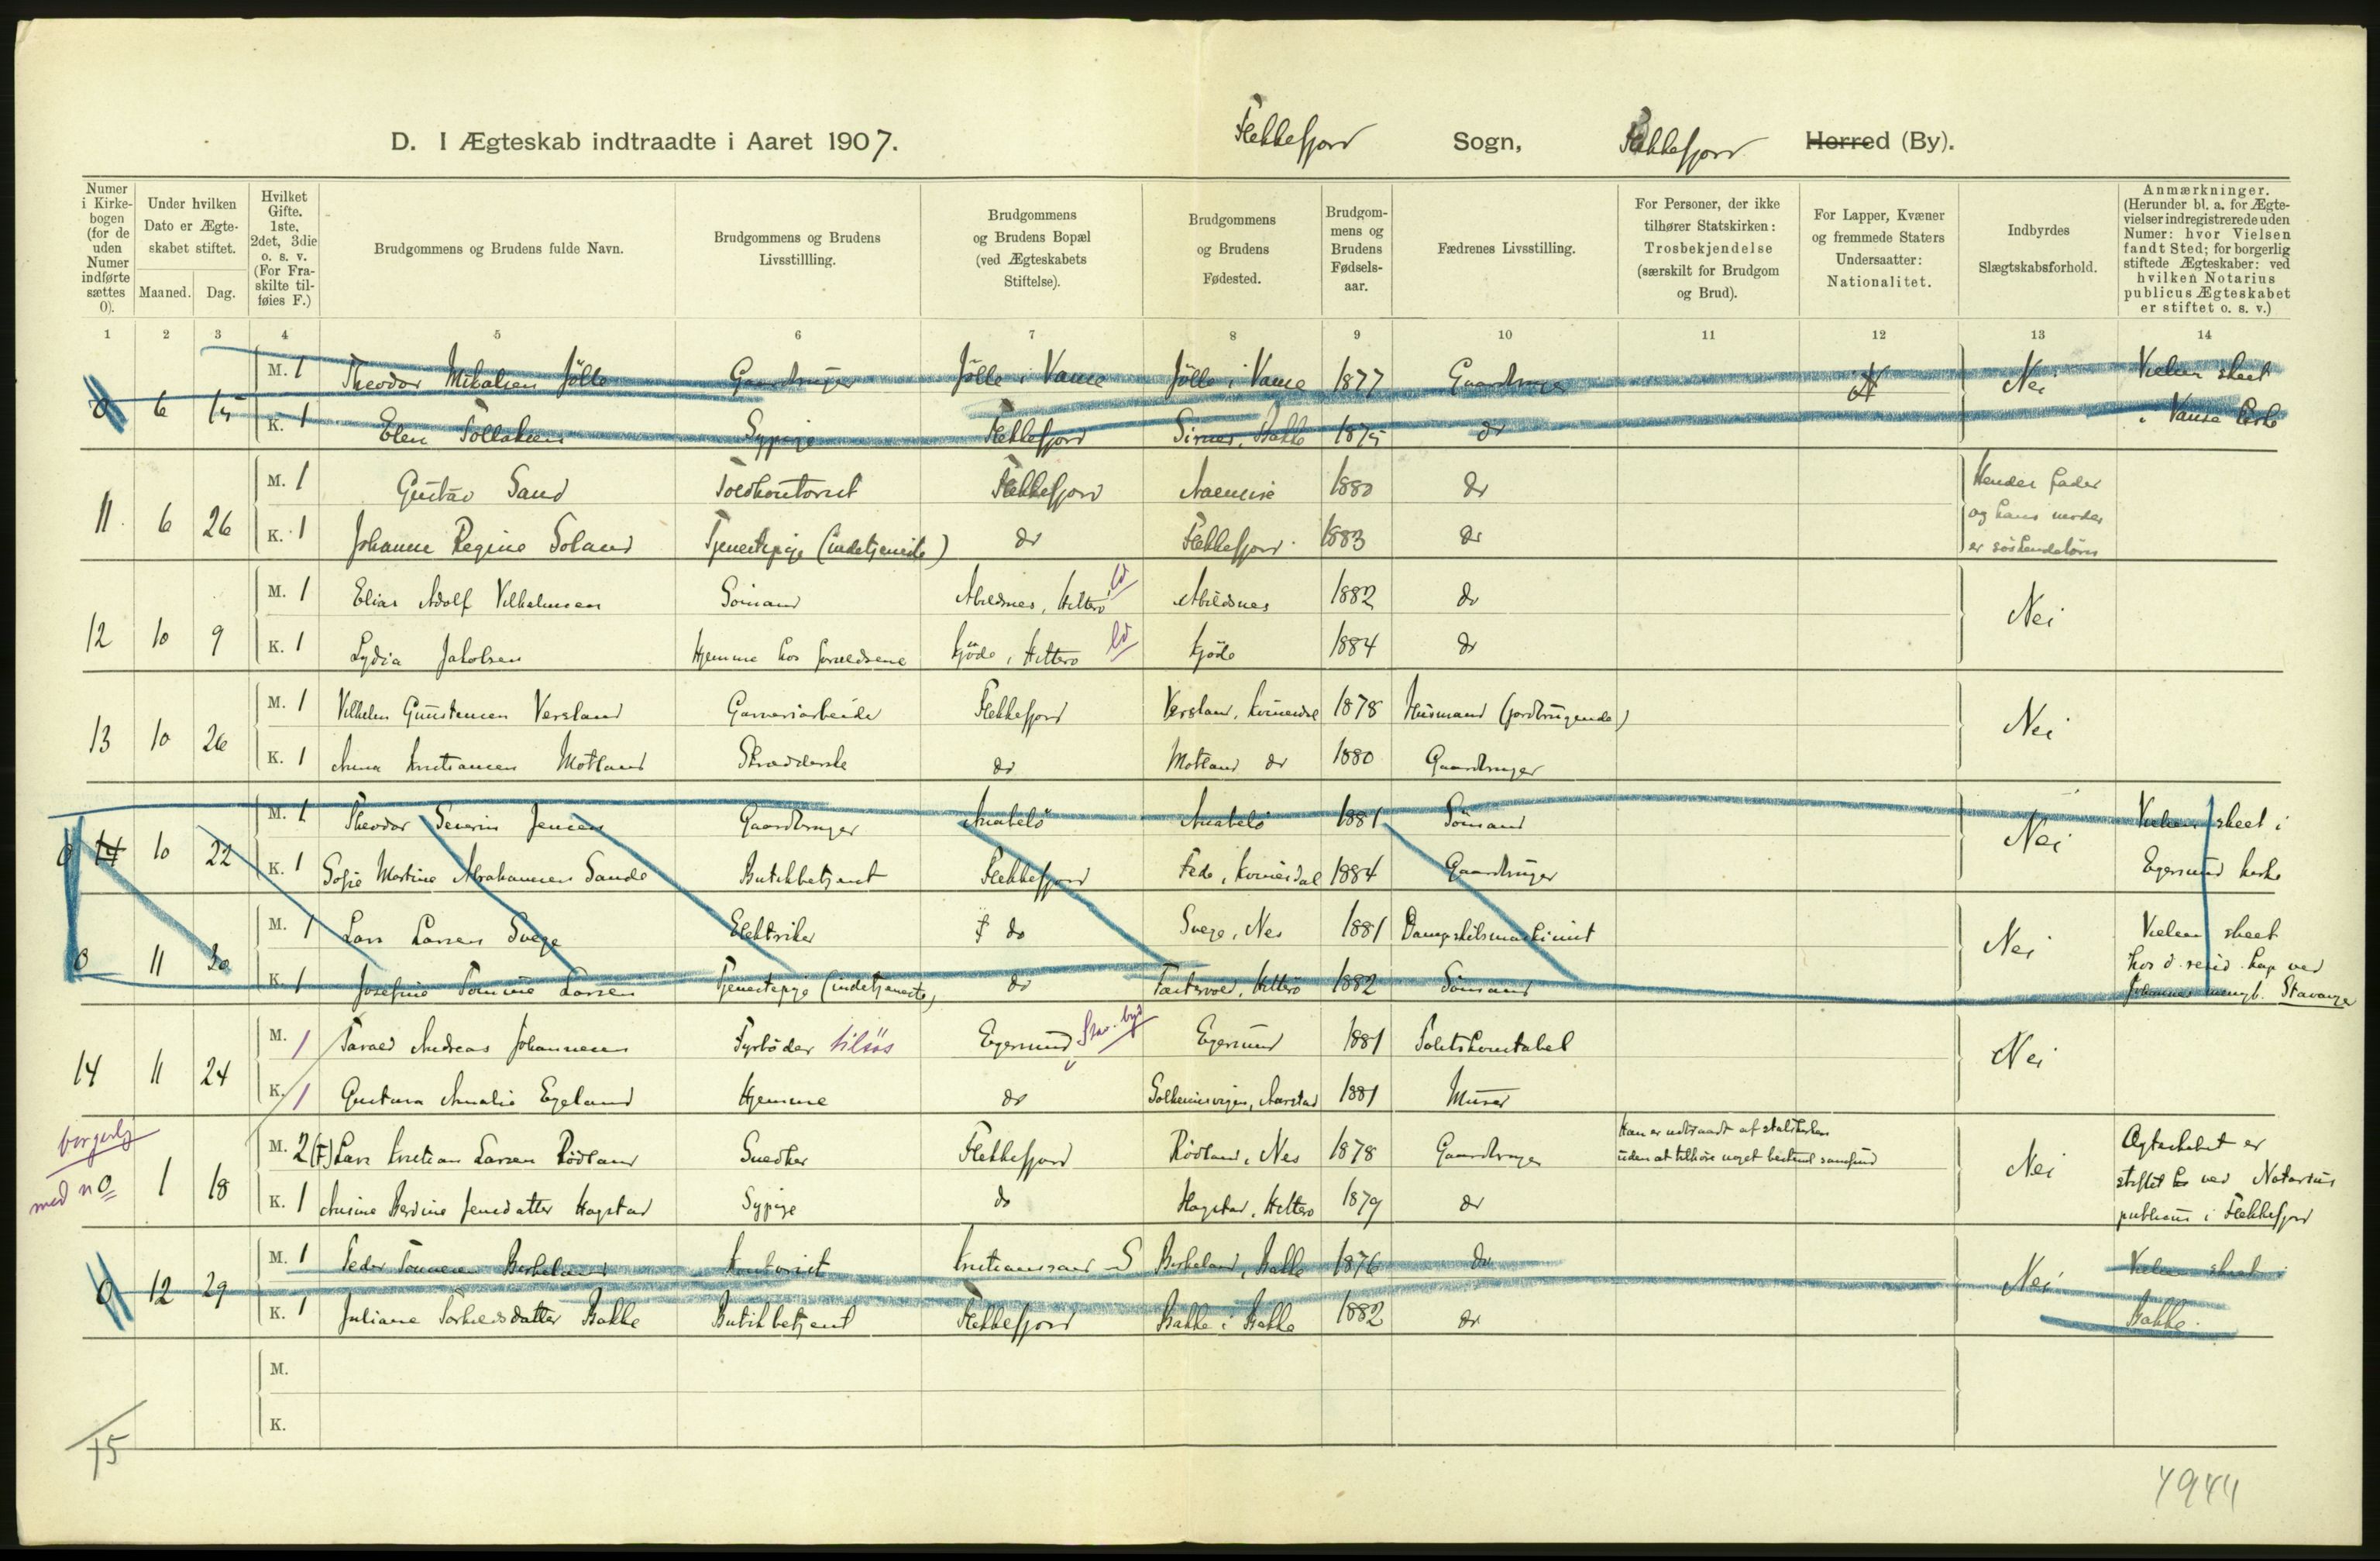 D. I Ægteskab indtraadte i Aaret 1907. Flekkefjord Sogn, Flekkefjord Herred (By).
Numer i Kirkebogen (for de uden Numer indførte sættes 0).
Under hvilken Dato er Ægteskabet stiftet.
Maaned. Dag.
Hvilket Gifte. 1ste, 2det, 3die o. s. v. (For Fraskilte tilføies F.)
Brudgommens og Brudens fulde Navn.
Brudgommens og Brudens Livsstillling.
Brudgommens og Brudens Bopæl (ved Ægteskabets Stiftelse).
Brudgommens og Brudens Fødested.
Brudgommens og Brudens Fødselsaar.
Fædrenes Livsstilling.
For Personer, der ikke tilhører Statskirken: Trosbekjendelse (særskilt for Brudgom og Brud).
For Lapper, Kvæner og fremmede Staters Undersaatter: Nationalitet.
Indbyrdes Slægtskabsforhold.
Anmærkninger. (Herunder bl. a. for Ægtevielser indregistrerede uden Numer: hvor Vielsen fandt Sted; for borgerlig stiftede Ægteskaber: ved hvilken Notarius publicus Ægteskabet er stiftet o. s. v.)
1 2 3 4 5 6 7 8 9 10 11 12 13 14
0 6 15 M. 1 Theodor Mikalsen Jölle Gaardbruger Jölle i Vanse Jölle i Vanse 1877 Gaardbruger Nei Vielsen skeet
K. 1 Elen Tollaksen Sypige Flekkefjord Sirnes, Bakke 1875 do i Vanse Kirke
11. 6 26 M. 1 Gustav Sand Toldkontorist Flekkefjord 1880 do Hendes fader
og hans moder
K. 1 Johanne Regine Soland Tjenestepige (indetjeneste) do Flekkefjord 1883 do er söskendebörn
12 10 9 M. 1 Elias Adolf Vilhelmsen Sömand Abelsnes, Hitterö ld Abelsnes 1882 do Nei
K. 1 Lydia Jakobsen Hjemme hos forældrene Kjöde, Hitterö ld Kjöde 1884 do
13 10 26 M. 1 Vilhelm Gunstensen Versland Garveriarbeider Flekkefjord Versland, Kvinesdal 1878 Husmand (jordbrugende) Nei
K. 1 Anna Kristiansen Motland Skrædderske do Motland do 1880 Gaardbruger
0 14 10 22 M. 1 Theodor Severin Jensen Gaardbruger Anabelö Anabelö 1881 Sömand Nei Vielsen skeet i
K. 1 Sofie Martine Abrahamsen Sande Butikbetjent Flekkefjord Fede, Kvinesdal 1884 Gaardbruger Egersund kirke
0 11 30 M. 1 Lars Larsen Svege Elektriker do Svege, Nes 1881 Dampskibsmaskinist Nei Vielsen skeet
hos d. resid. kap ved
K. 1 Josefine Tomine Larsen Tjenestepige (indetjeneste) do Hitterö 1882 Sömand Johannes menigh. Stavanger
14 11 24 M. 1 Tarald Andreas Johannesen Fyrböder tilsös Egersund Stav. by Egersund 1881 Politikonstabel Nei
K. 1 Gustava Amalie Egeland Hjemme do 1881 Murer
borgerlig
med no 1 18 M. 2 (F) Lars Kristian Larsen Rödland Snedker Flekkefjord Rödland, Nes 1878 Gaardbruger Han er udtraadt af statskirken
uden at tilhöre noget bestemt samfund Nei Ægteskabet er
stiftet ved Notarius
K. 1 Ansine Berdine Jensdatter Hagstad Sypige do Hagstad, Hitterö 1879 do publicus i Flekkefjord
0 12 29 M. 1 Peder Tönnesen Birkeland Kontorist Kristianssand S Birkeland, Bakke 1876 do Nei Vielsen skeet i
K. 1 Juliane Torkelsdatter Bakke Butikbetjent Flekkefjord Bakke i Bakke 1882 do Bakke.
M.
K.
15
4944